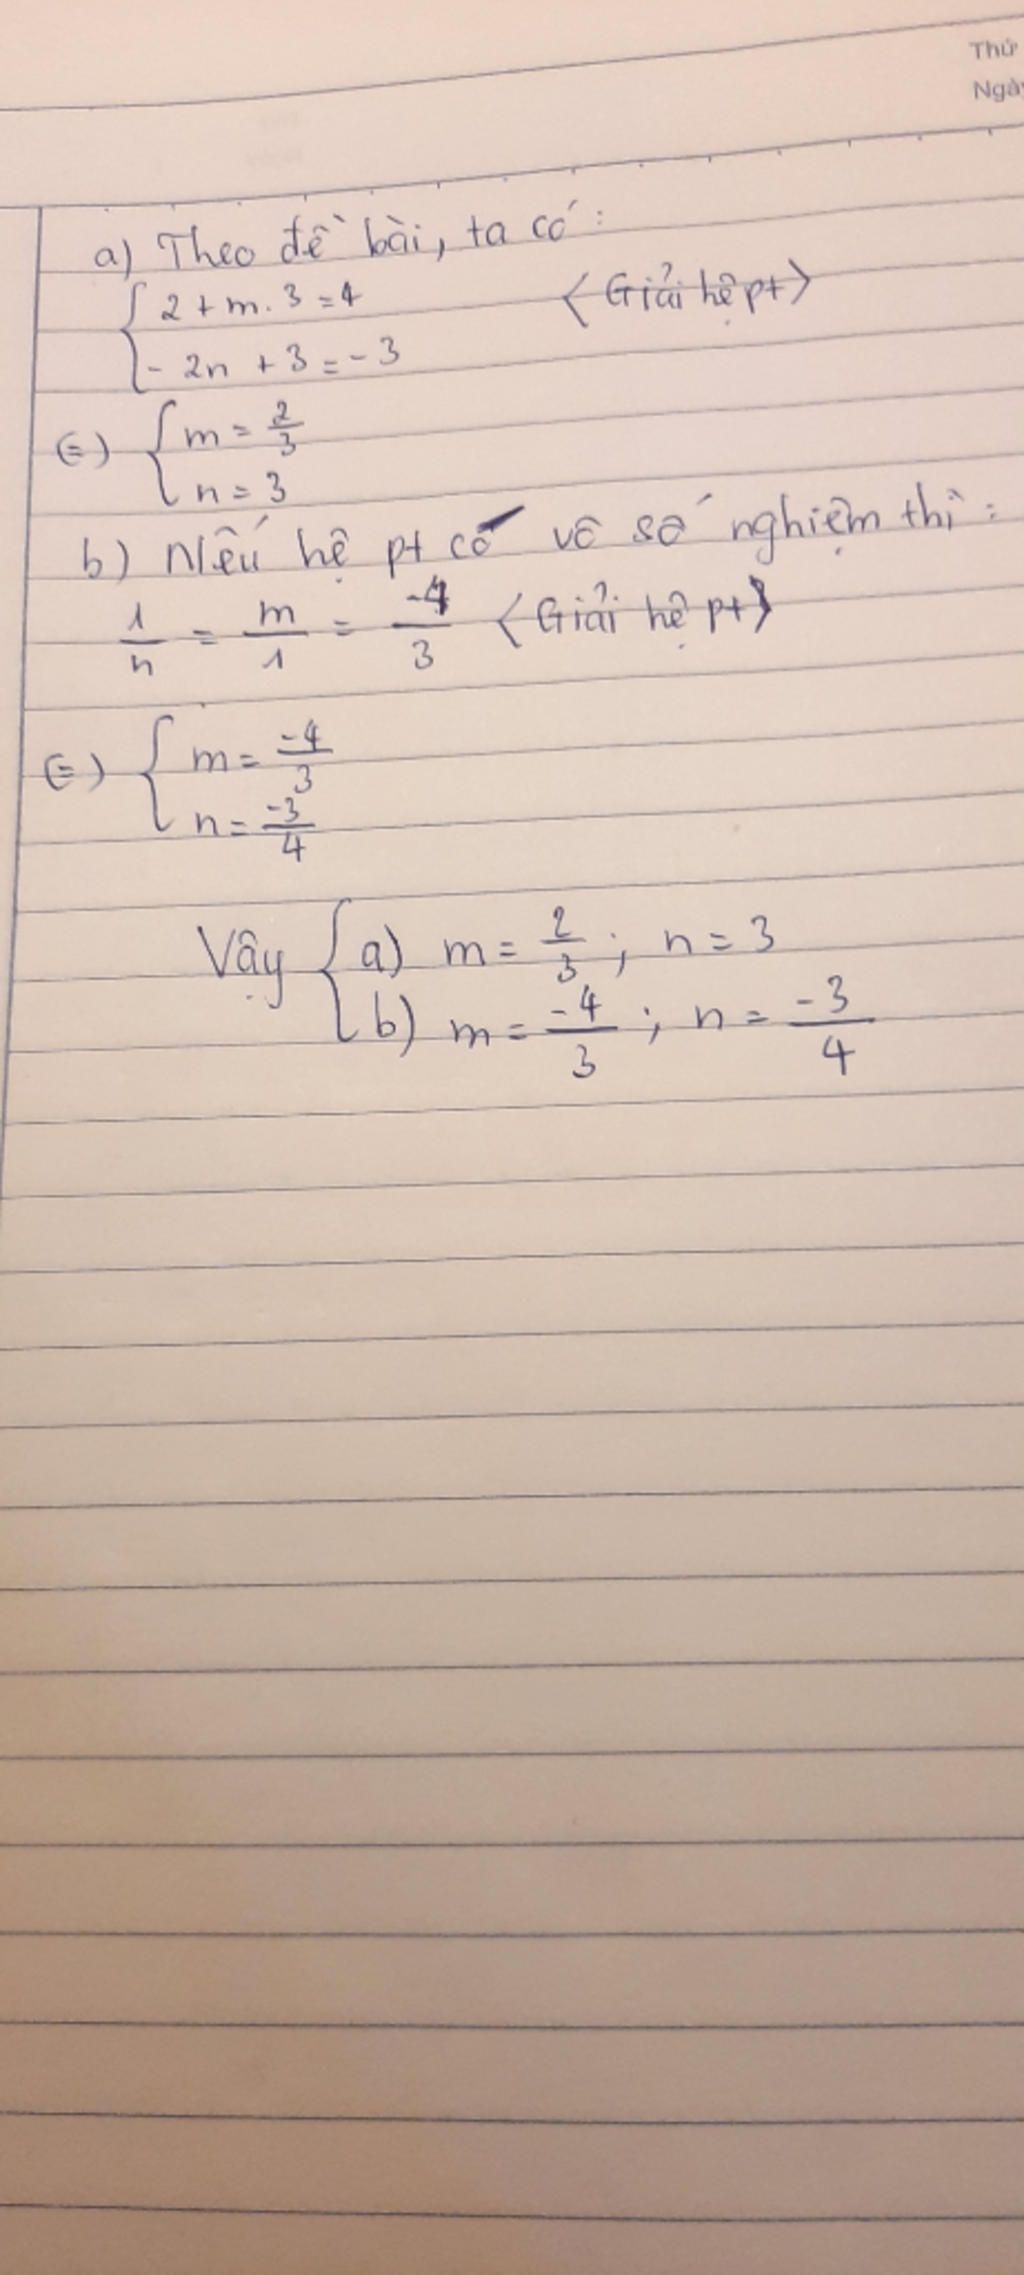 Thứ
Ngày
a) Theo đề bài, ta có:
{ 2 + m. 3 = 4 <Giải hệ pt>
- 2n + 3 = - 3
(=) { m = 2/3
n = 3
b) Nếu hệ pt có vô số nghiệm thì:
1/n = m/1 = -4/3 <Giải hệ pt>
(=) { m = -4/3
n = -3/4
Vậy { a) m = 2/3 ; n = 3
b) m = -4/3 ; n = -3/4